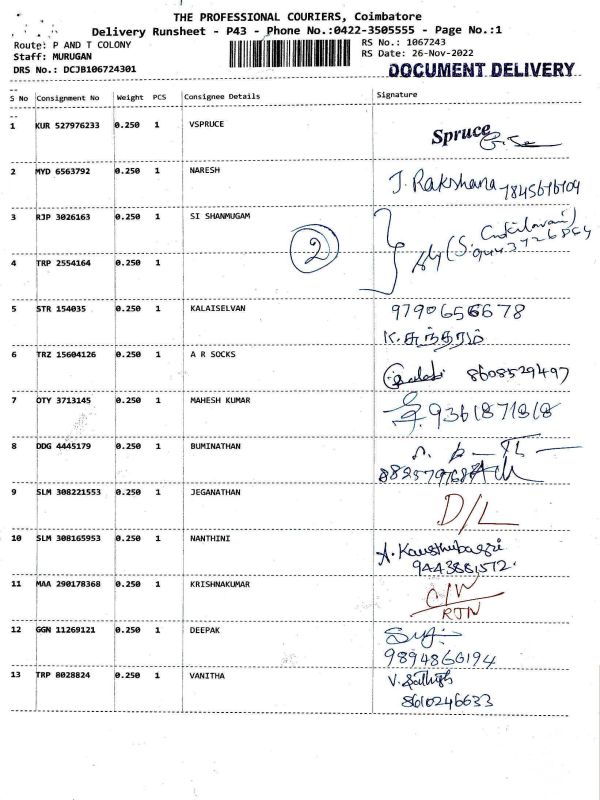 THE PROFESSIONAL COURIERS, Coimbatore
Delivery Runsheet - P43 - Phone No.:0422-3505555 - Page No.:1
Route: P AND T COLONY
RS No.: 1067243
Staff: MURUGAN
RS Date: 26-Nov-2022
DRS No.: DCJB106724301
DOCUMENT DELIVERY
S No Consignment No Weight PCS Consignee Details Signature
1 KUR 527976233 0.250 1 VSPRUCE Spruce
2 MYD 6563792 0.250 1 NARESH J. Rakshana
3 RJP 3026163 0.250 1 SI SHANMUGAM
2
4 TRP 2554164 0.250 1
5 STR 154035 0.250 1 KALAISELVAN 9790656678
K. சுந்தரம்
6 TRZ 15604126 0.250 1 A R SOCKS 8608529497
7 OTY 3713145 0.250 1 MAHESH KUMAR 9361871818
8 DDG 4445179 0.250 1 BUMINATHAN
9 SLM 308221553 0.250 1 JEGANATHAN D/L
10 SLM 308165953 0.250 1 NANTHINI
9443881572
11 MAA 290178368 0.250 1 KRISHNAKUMAR C/N
RTN
12 GGN 11269121 0.250 1 DEEPAK
9894866194
13 TRP 8028824 0.250 1 VANITHA
8610246633